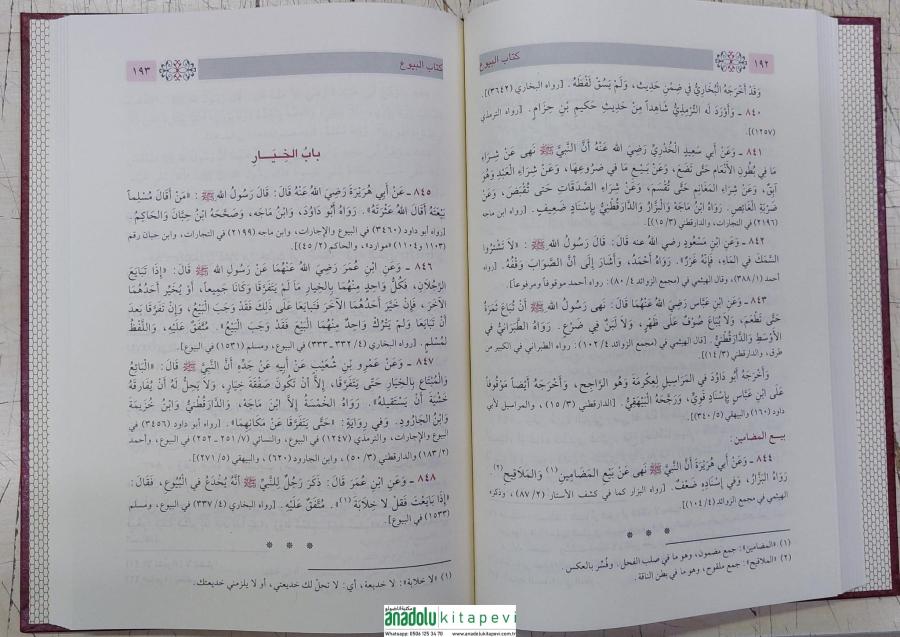 ١٩٢
كتاب البيوع
وَقَدْ أَخْرَجَهُ الْبُخَارِيُّ فِي ضِمْنِ حَدِيثٍ، وَلَمْ يَسُقْ لَفْظَهُ. [رواه البخاري (٣٦٤٢)].
٨٤٠ ـ وَأَوْرَدَ لَه التِّرْمِذِيُّ شَاهِداً مِنْ حَدِيثِ حَكِيمِ بْنِ حِزَامٍ. [رواه الترمذي
(١٢٥٧)].
٨٤١ ـ وَعَنْ أَبِي سَعِيدٍ الْخُدْرِيِّ رَضِيَ اللهُ عَنْهُ أَنَّ النَّبِيَّ ﷺ نَهَى عَنْ شِرَاءِ
مَا فِي بُطُونِ الْأَنْعَامِ حَتَّى تَضَعَ، وَعَنْ بَيْعِ مَا فِي ضُرُوعِهَا، وَعَنْ شِرَاءِ الْعَبْدِ وَهُوَ
آبِقٌ، وَعَنْ شِرَاءِ الْمَغَانِمِ حَتَّى تُقْسَمَ، وَعَنْ شِرَاءِ الصَّدَقَاتِ حَتَّى تُقْبَضَ، وَعَنْ
ضَرْبَةِ الْغَائِصِ. رَوَاهُ ابْنُ مَاجَهْ وَالْبَزَّارُ وَالدَّارَقُطْنِيُّ بِإِسْنَادٍ ضَعِيفٍ. [رواه ابن ماجه
(٢١٩٦) في التجارات، والدارقطني (١٥/٣)].
٨٤٢ ـ وَعَنِ ابْنِ مَسْعُودٍ رضي الله عنه قَالَ: قَالَ رَسُولُ اللهِ ﷺ: «لَا تَشْتَرُوا
السَّمَكَ فِي الْمَاءِ، فَإِنَّهُ غَرَرٌ». رَوَاهُ أَحْمَدُ، وَأَشَارَ إِلَى أَنَّ الصَّوَابَ وَقْفُهُ. [رواه
أحمد (٣٨٨/١)، وقال الهيثمي في (مجمع الزوائد ٨٠/٤): رواه أحمد موقوفاً ومرفوعاً].
٨٤٣ ـ وَعَنِ ابْنِ عَبَّاسٍ رَضِيَ اللهُ عَنْهُمَا قَالَ: نَهَى رَسُولُ اللهِ ﷺ أَنْ تُبَاعَ ثَمَرَةٌ
حَتَّى تَطْعَمَ، وَلَا يُبَاعَ صُوفٌ عَلَى ظَهْرٍ، وَلَا لَبَنٌ فِي ضَرْعٍ. رَوَاهُ الطَّبَرَانِيُّ فِي
الْأَوْسَطِ وَالدَّارَقُطْنِيُّ. [قال الهيثمي في (مجمع الزوائد ١٠٢/٤): رواه الطبراني في الكبير من
طرق، والدارقطني (١٤/٣)].
وَأَخْرَجَهُ أَبُو دَاوُدَ فِي الْمَرَاسِيلِ لِعِكْرِمَةَ وَهُوَ الرَّاجِحُ، وَأَخْرَجَهُ أَيْضاً مَوْقُوفاً
عَلَى ابْنِ عَبَّاسٍ بِإِسْنَادٍ قَوِيٍّ، وَرَجَّحَهُ الْبَيْهَقِيُّ. [الدارقطني (١٥/٣)، والمراسيل لأبي
داود (١٦٠) والبيهقي (٣٤٠/٥)].
بيع المضامين:
٨٤٤ ـ وَعَنْ أَبِي هُرَيْرَةَ أَنَّ النَّبِيَّ ﷺ نَهَى عَنْ بَيْعِ الْمَضَامِينِ (١) وَالْمَلَاقِيحِ (٢)
رَوَاهُ الْبَزَّارُ، وَفِي إِسْنَادِهِ ضَعْفٌ. [رواه البزار كما في كشف الأستار (٨٧/٢)، وذكره
الهيثمي في مجمع الزوائد (١٠٤/٤)].
* * *
(١) «المضامين»: جمع مضمون، وهو ما في صلب الفحل. وفُسِّر بالعكس.
(٢) «الملاقيح»: جمع ملقوح، وهو ما في بطن الناقة.
كتاب البيوع
١٩٣
بابُ الخِيَـارِ
٨٤٥ ـ عَنْ أَبِي هُرَيْرَةَ رَضِيَ اللهُ عَنْهُ قَالَ: قَالَ رَسُولُ اللهِ ﷺ: «مَنْ أَقَالَ مُسْلِماً
بَيْعَتَهُ أَقَالَ اللهُ عَثْرَتَهُ». رَوَاهُ أَبُو دَاوُدَ، وَابْنُ مَاجَه، وَصَحَّحَهُ ابْنُ حِبَّانَ وَالْحَاكِمُ.
[رواه أبو داود (٣٤٦٠) في البيوع والإجارات، وابن ماجه (٢١٩٩) في التجارات، وابن حبان رقم
(١١٠٣ و١١٠٤) «موارد»، والحاكم (٤٥/٢)].
٨٤٦ ـ وَعَنِ ابْنِ عُمَرَ رَضِيَ اللهُ عَنْهُمَا عَنْ رَسُولِ اللهِ ﷺ قَالَ: «إِذَا تَبَايَعَ
الرَّجُلَانِ، فَكُلُّ وَاحِدٍ مِنْهُمَا بِالْخِيَارِ مَا لَمْ يَتَفَرَّقَا وَكَانَا جَمِيعاً، أَوْ يُخَيِّرُ أَحَدُهُمَا
الْآخَرَ، فَإِنْ خَيَّرَ أَحَدُهُمَا الْآخَرَ فَتَبَايَعَا عَلَى ذَلِكَ فَقَدْ وَجَبَ الْبَيْعُ، وَإِنْ تَفَرَّقَا بَعْدَ
أَنْ تَبَايَعَا وَلَمْ يَتْرُكْ وَاحِدٌ مِنْهُمَا الْبَيْعَ فَقَدْ وَجَبَ الْبَيْعُ». مُتَّفَقٌ عَلَيْهِ، وَاللَّفْظُ
لِمُسْلِمٍ. [رواه البخاري (٣٣٢/٤ ـ ٣٣٣) في البيوع، ومسلم (١٥٣١) في البيوع].
٨٤٧ ـ وَعَنْ عَمْرِو بْنِ شُعَيْبٍ عَنْ أَبِيهِ عَنْ جَدِّهِ أَنَّ النَّبِيَّ ﷺ قَالَ: «الْبَائِعُ
وَالْمُبْتَاعُ بِالْخِيَارِ حَتَّى يَتَفَرَّقَا، إِلَّا أَنْ تَكُونَ صَفْقَةَ خِيَارٍ، وَلَا يَحِلُّ لَهُ أَنْ يُفَارِقَهُ
خَشْيَةَ أَنْ يَسْتَقِيلَهُ». رَوَاهُ الْخَمْسَةُ إِلَّا ابْنَ مَاجَهْ، وَالدَّارَقُطْنِيُّ وَابْنُ خُزَيْمَةَ
وَابْنُ الْجَارُودِ. وَفِي رِوَايَةٍ: «حَتَّى يَتَفَرَّقَا عَنْ مَكَانِهِمَا». [رواه أبو داود (٣٤٥٦) في
البيوع والإجارات، والترمذي (١٢٤٧) في البيوع، والنسائي (٢٥١/٧ ـ ٢٥٢) في البيوع، وأحمد
(١٨٣/٢) والدارقطني (٥٠/٣)، وابن الجارود (٦٢٠)، والبيهقي (٢٧١/٥)].
٨٤٨ ـ وَعَنِ ابْنِ عُمَرَ قَالَ: ذَكَرَ رَجُلٌ لِلنَّبِيِّ ﷺ أَنَّهُ يُخْدَعُ فِي الْبُيُوعِ، فَقَالَ:
«إِذَا بَايَعْتَ فَقُلْ لَا خِلَابَةَ (١)». مُتَّفَقٌ عَلَيْهِ. [رواه البخاري (٣٣٧/٤) في البيوع، ومسلم
(١٥٣٣) في البيوع].
* * *
(١) «لا خلابة»: لا خديعة، أي: لا تحلّ لك خديعتي، أو لا يلزمني خديعتك.
مكتبة الأناضول
anadolu kitapevi
Whatsapp: 0506 125 34 70 www.anadolukitapevi.com.tr